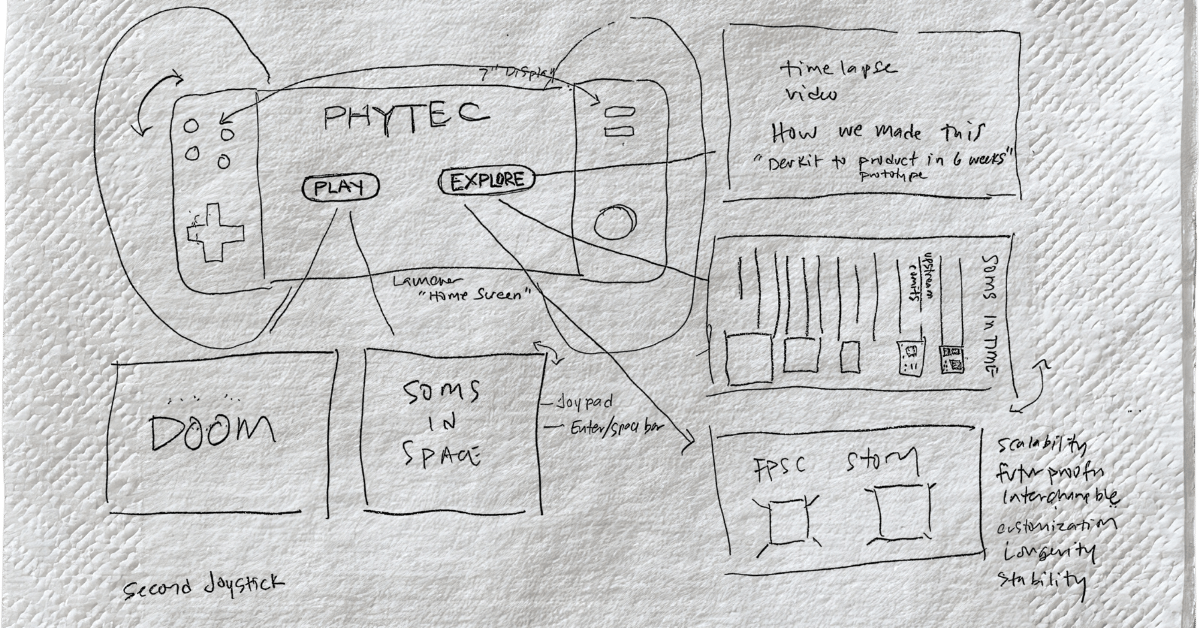 7" Display
PHYTEC
PLAY
EXPLORE
Launcher
"Home Screen"
time lapse
video
How we made this
"Devkit to product in 6 weeks"
prototype
SOMS IN TIME
upstream
DOOM
SOMS
IN
SPACE
Joypad
Enter/Space bar
FPSC
scalability
Interchangable
customization
Longevity
stability
second Joystick